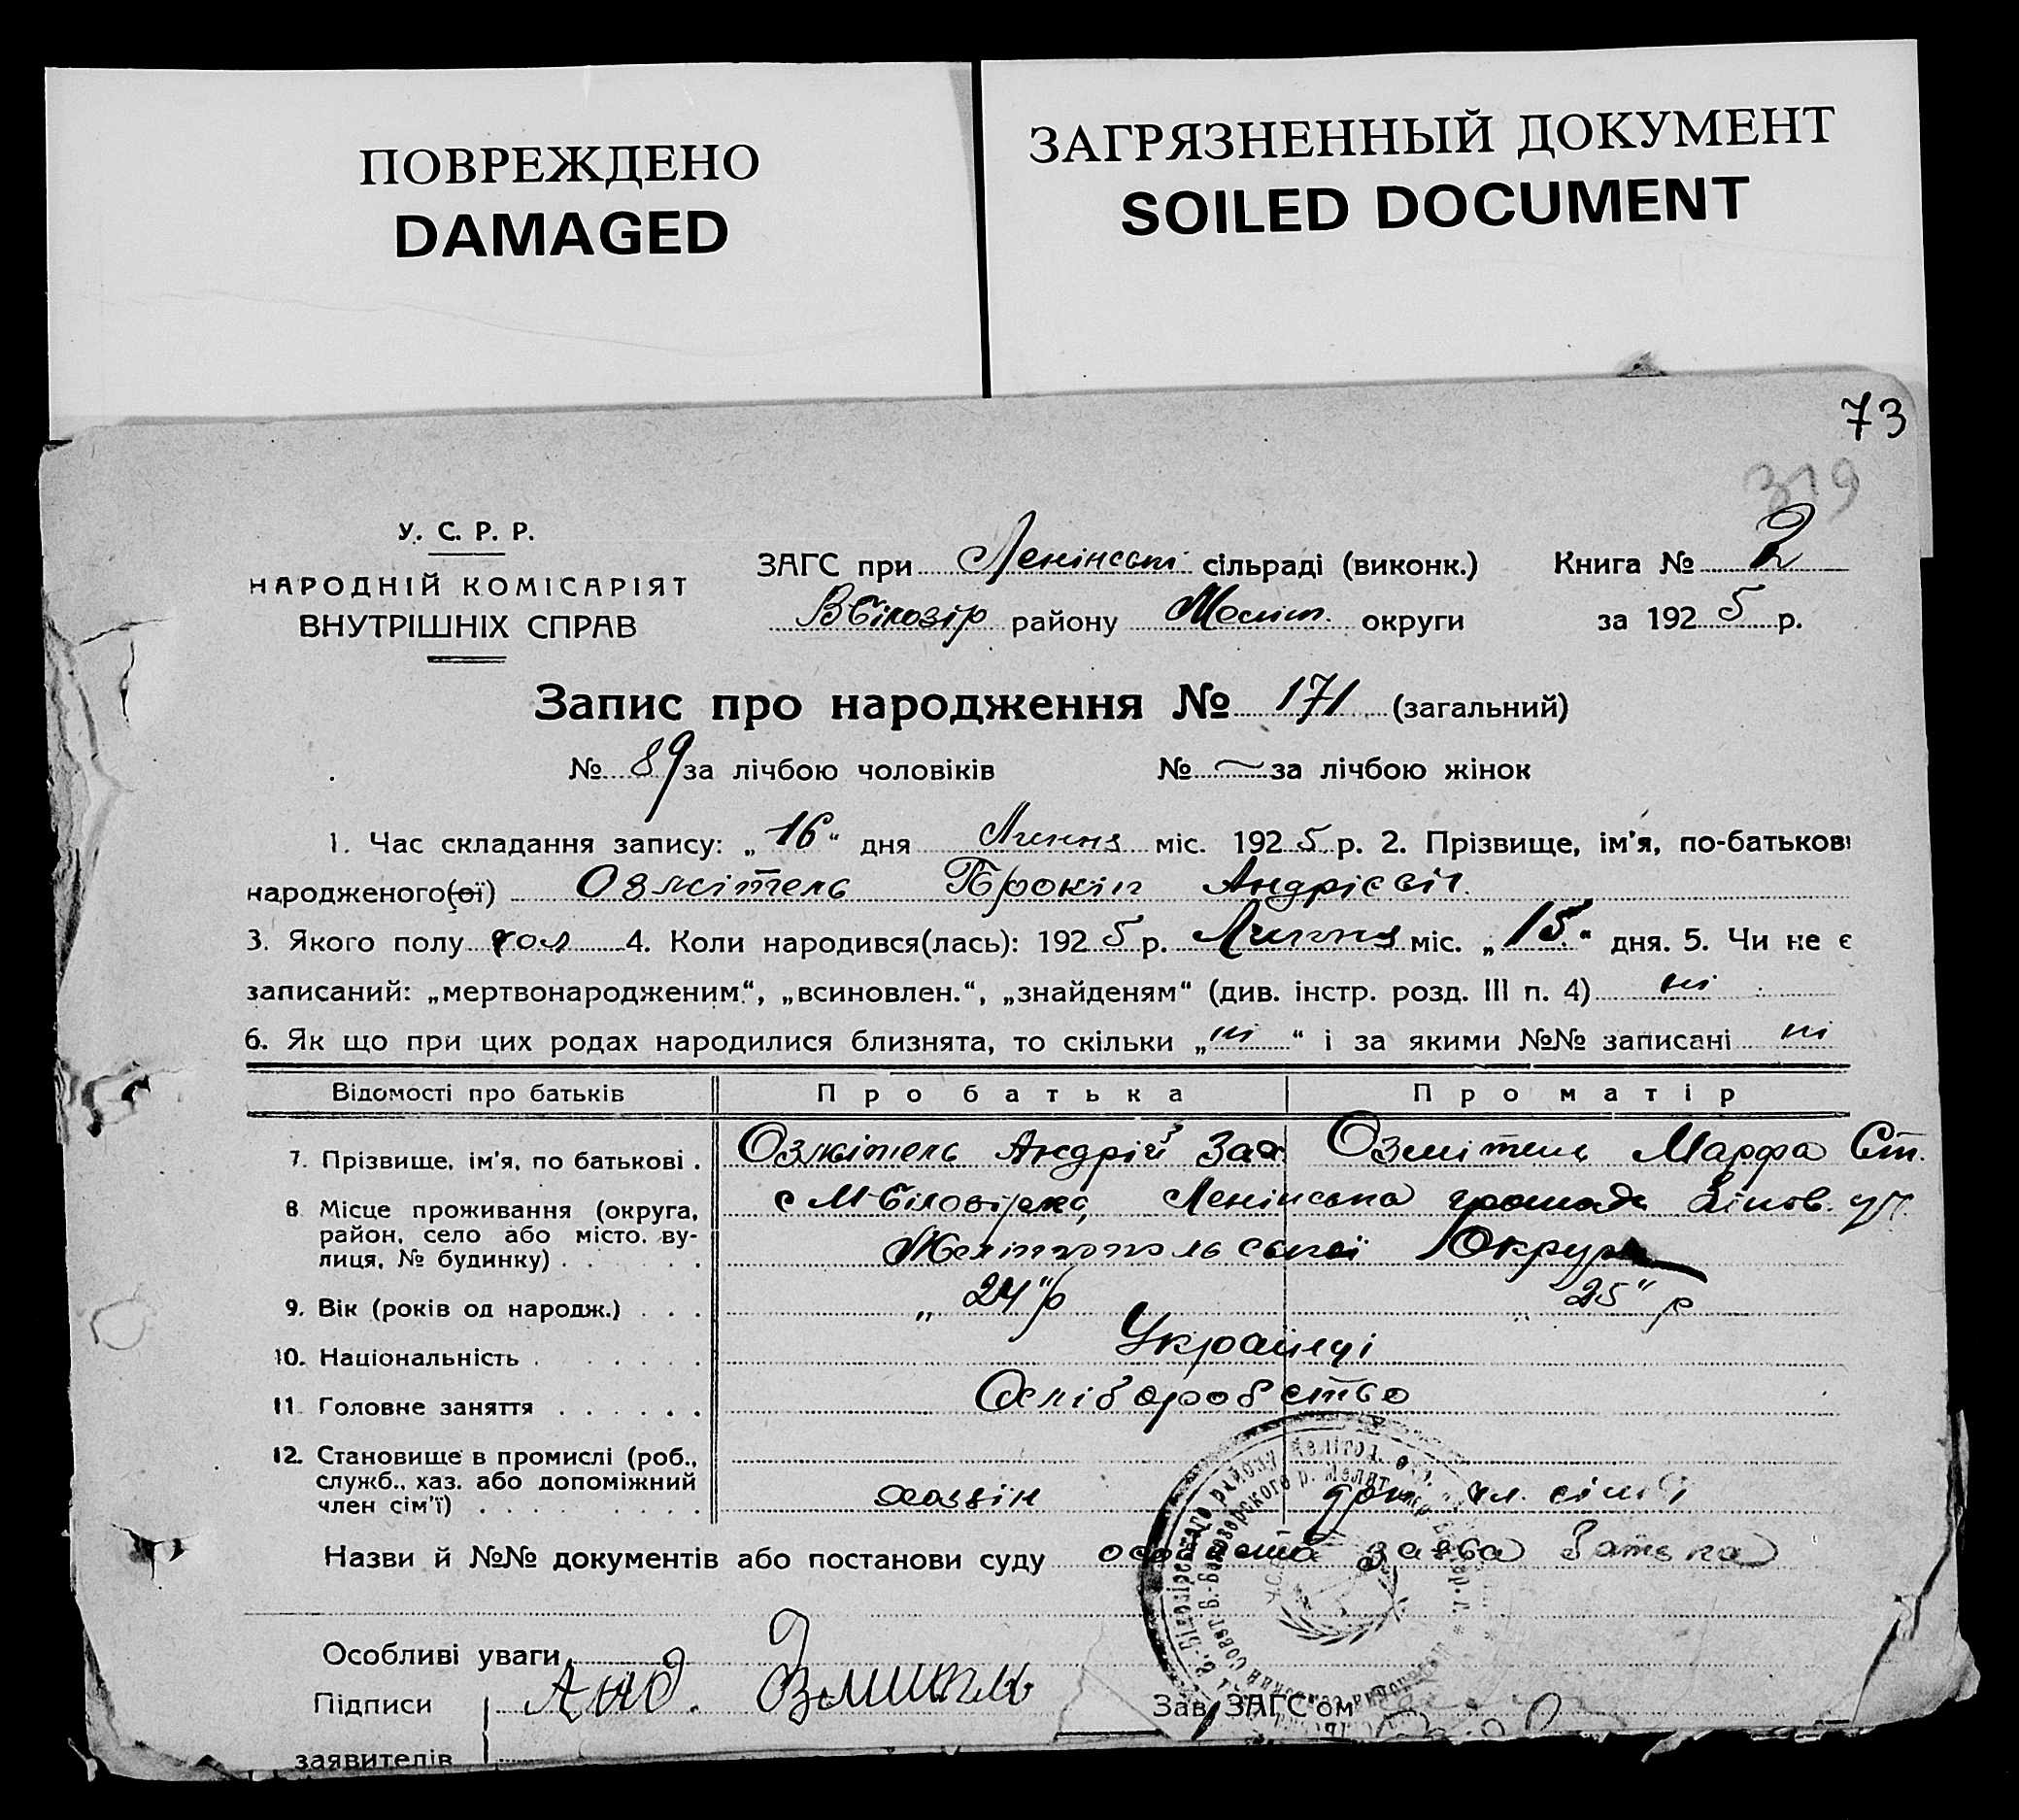 ПОВРЕЖДЕНО
DAMAGED
ЗАГРЯЗНЕННЫЙ ДОКУМЕНТ
SOILED DOCUMENT
73
319
У. С. Р. Р.
НАРОДНІЙ КОМІСАРІЯТ
ВНУТРІШНІХ СПРАВ
ЗАГС при Ленінські сільраді (виконк.) Книга № 2
В Білозір району Меліт. округи за 192 5 р.
Запис про народження № 171 (загальний)
№ 89 за лічбою чоловіків № — за лічбою жінок
1. Час складання запису: „ 16 “ дня Липня міс. 192 5 р. 2. Прізвище, ім'я, по-батькові
народженого(ої) Озмітель Прокіп Андрієвіч.
3. Якого полу чол 4. Коли народився(лась): 192 5 р. Липня міс. „ 15 “ дня. 5. Чи не є
записаний: „мертвонародженим“, „всиновлен.“, „знайденям“ (див. інстр. розд. III п. 4) ні
6. Як що при цих родах народилися близнята, то скільки „ ні “ і за якими №№ записані ні
Відомості про батьків Про батька Про матір
7. Прізвище, ім'я, по батькові . Озмітель Андрій Зах Озмітель Марфа Ст.
8 Місце проживання (округа, район, село або місто, вулиця, № будинку) . с М-Білозірка, Ленінська громада
Мелітопольської Округи
9. Вік (років од народж.) . . . „ 24 " р „ 25 " р
10. Національність . Українці
11. Головне заняття . Хліборобство
12. Становище в промислі (роб., служб., хаз. або допоміжний член сім'ї) . хазяін доп. чл. сім'ї
Назви й №№ документів або постанови суду особиста заява батька
Особливі уваги
Підписи Анд. Змитель
заявителів
Зав. ЗАГС'ом